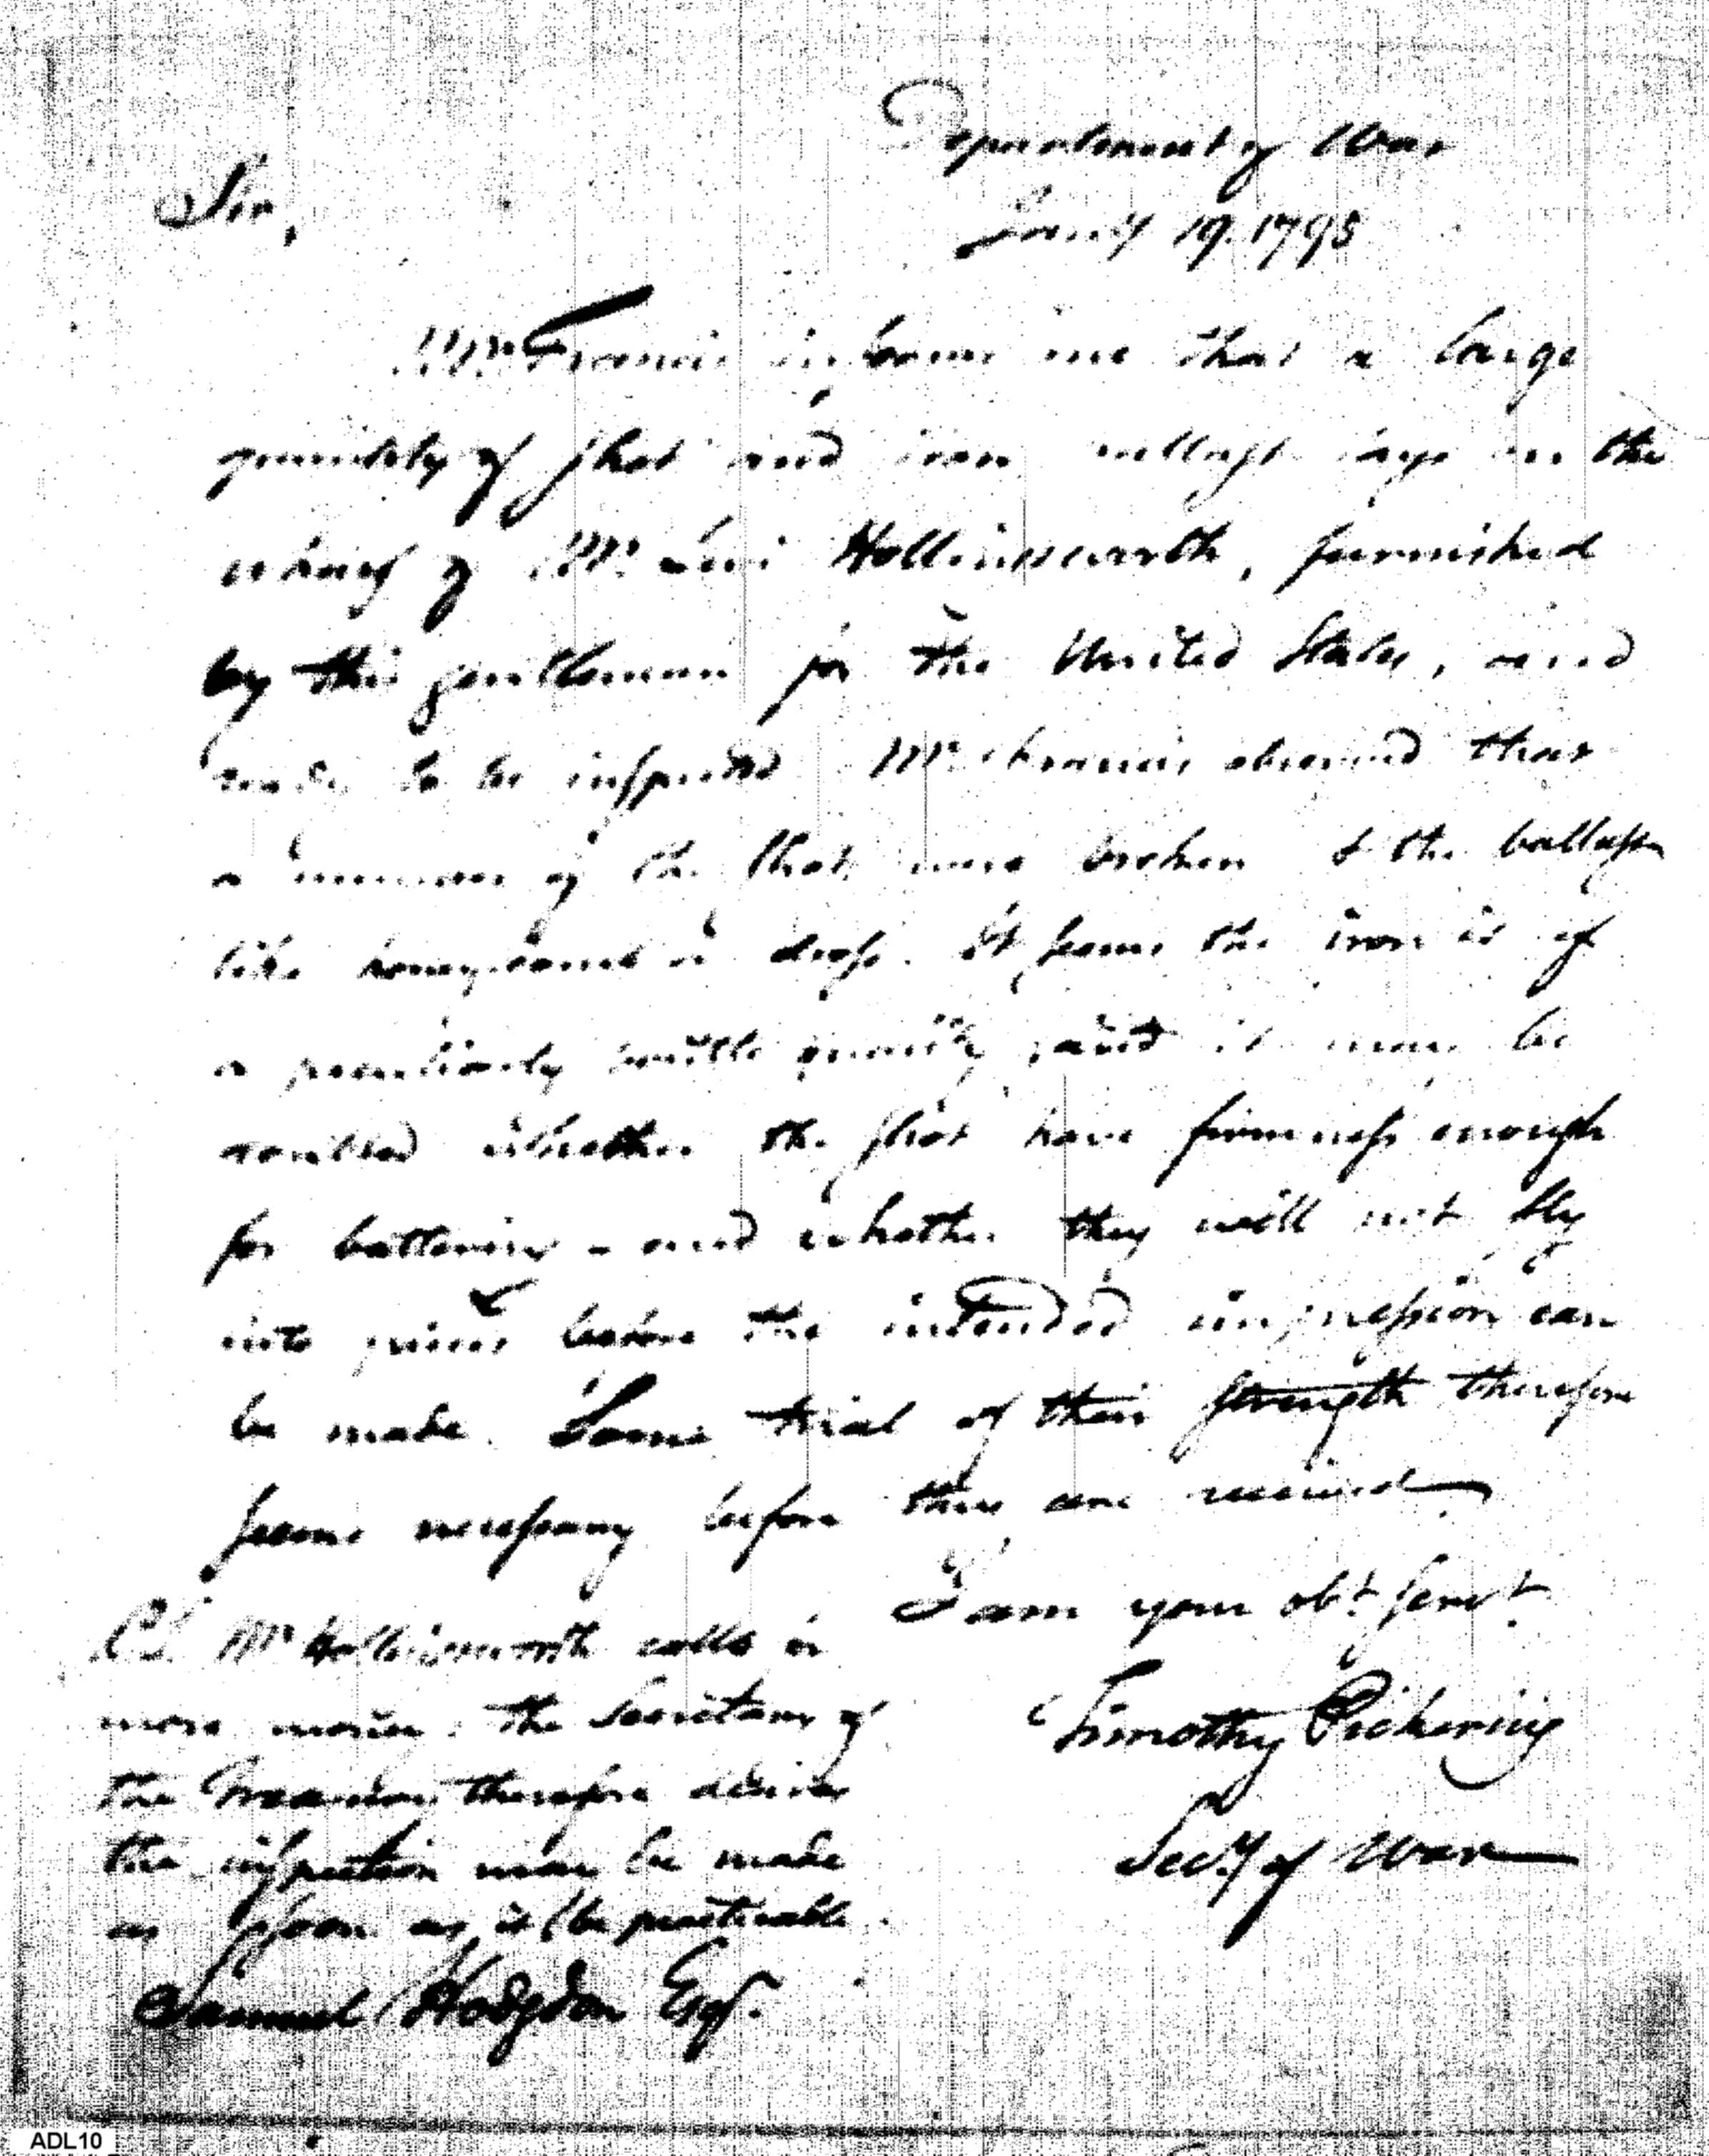 Department of War
Jany 19. 1795
Sir,
Mr. Francis informs me that a large
quantity of shot and iron ballast lays on the
wharf of Mr. Levi Hollinsworth, furnished
by this gentleman for the United States, and
ready to be inspected Mr. Francis observed that
a number of the shot were broken & the ballast
like honeycomb or dross. It seems the iron is of
a peculiarly brittle quality, and it may be
doubted whether the shot have firmness enough
for battering - and whether they will not fly
into pieces before the intended impression can
be made. Some trial of their strength therefore
seems necessary before they are received
I am your obt. servt.
Timothy Pickering
Secy. of War
P.S. Mr Hollinsworth calls for
more money. the Secretary of
the Treasury therefore desires
the inspection may be made
as soon as it be practicable.
Samuel Hodgdon Esqr.
ADL10